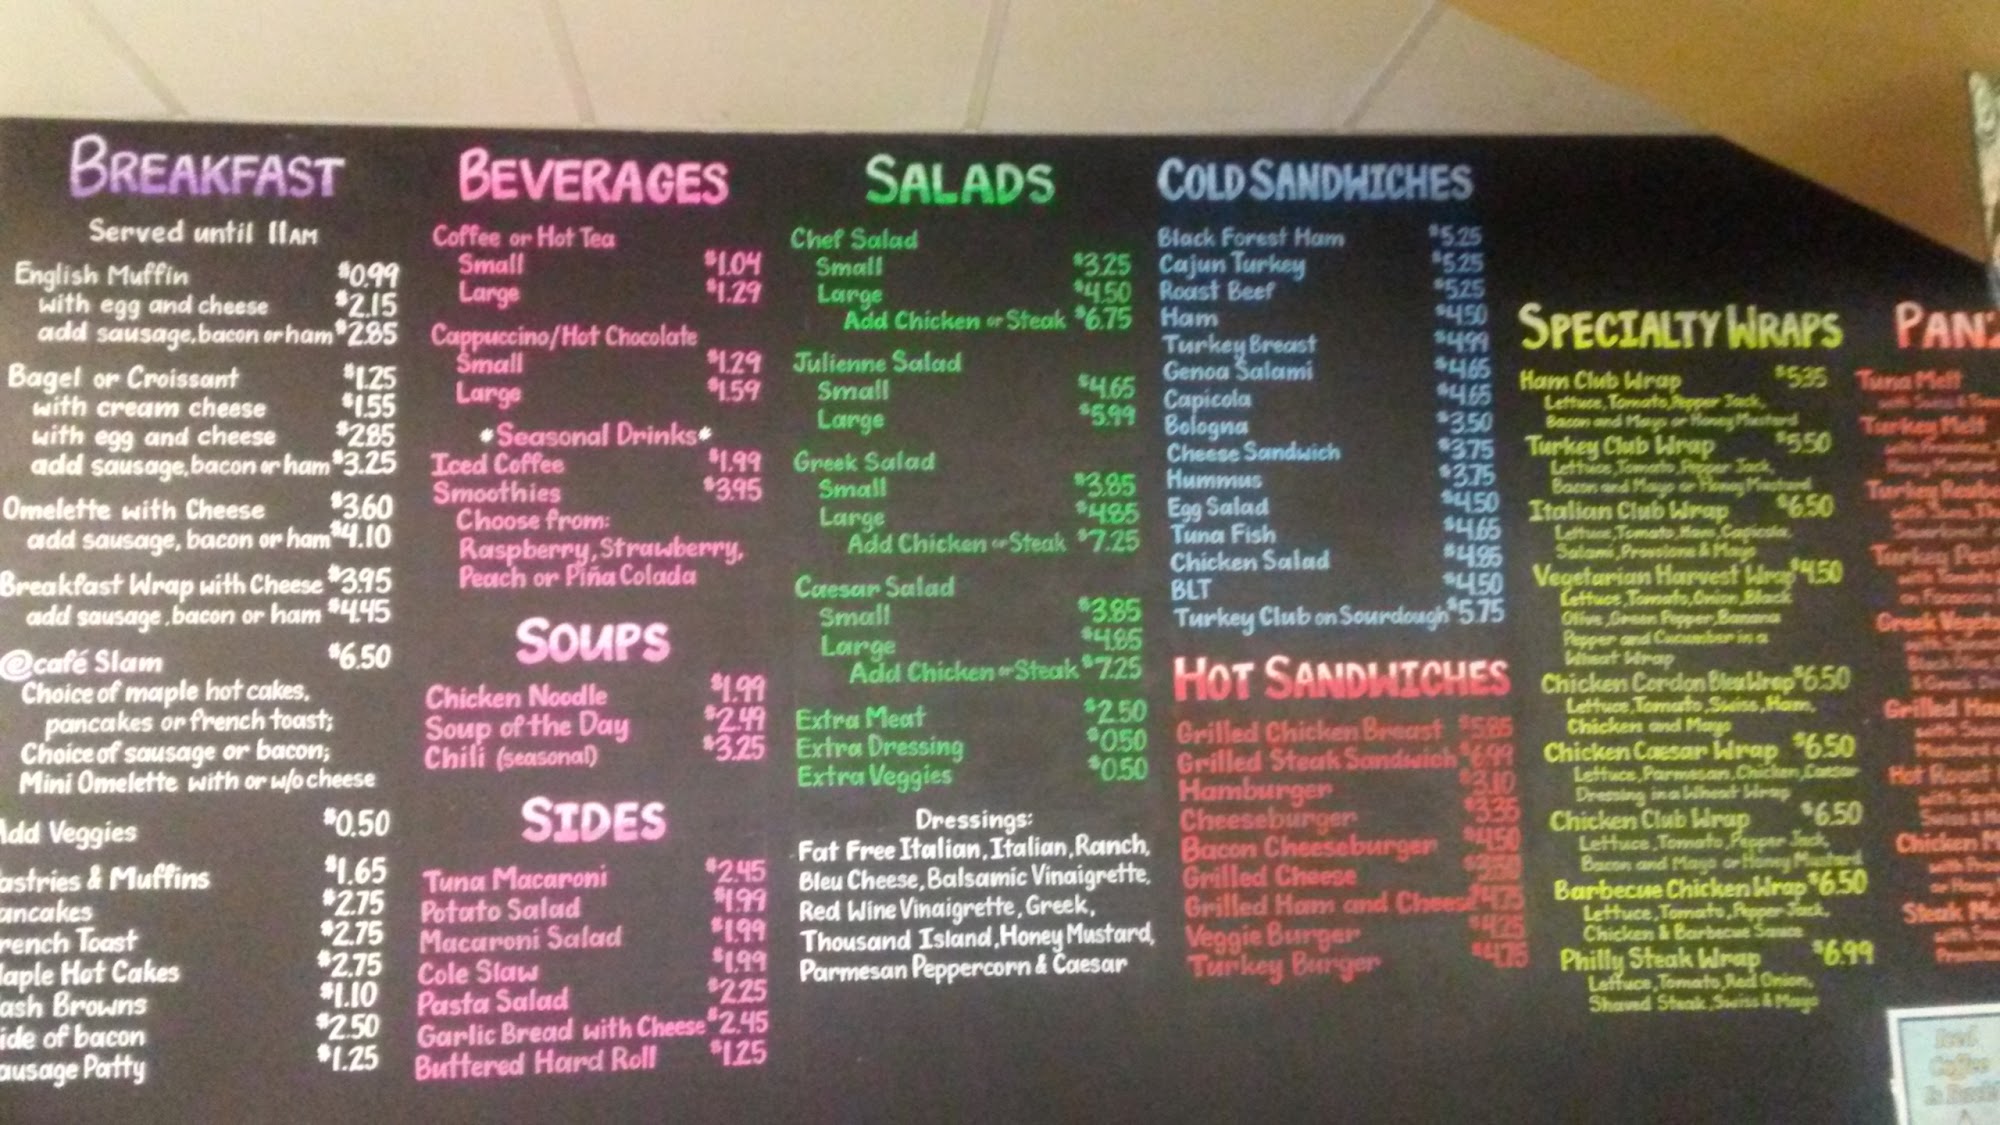 BREAKFAST
Served until 11AM
English Muffin $0.99
with egg and cheese $2.15
add sausage, bacon or ham $2.85
Bagel or Croissant $1.25
with cream cheese $1.55
with egg and cheese $2.85
add sausage, bacon or ham $3.25
Omelette with Cheese $3.60
add sausage, bacon or ham $4.10
Breakfast Wrap with Cheese $3.95
add sausage, bacon or ham $4.45
@café Slam $6.50
Choice of maple hot cakes,
pancakes or french toast;
Choice of sausage or bacon;
Mini Omelette with or w/o cheese
Add Veggies $0.50
astries & Muffins $1.65
ancakes $2.75
rench Toast $2.75
aple Hot Cakes $2.75
ash Browns $1.10
ide of bacon $2.50
ausage Patty $1.25
BEVERAGES
Coffee or Hot Tea
Small $1.04
Large $1.29
Cappuccino/Hot Chocolate
Small $1.29
Large $1.59
*Seasonal Drinks*
Iced Coffee $1.99
Smoothies $3.95
Choose from:
Raspberry, Strawberry,
Peach or Piña Colada
SOUPS
Chicken Noodle $1.99
Soup of the Day $2.49
Chili (seasonal) $3.25
SIDES
Tuna Macaroni $2.45
Potato Salad $1.99
Macaroni Salad $1.99
Cole Slaw $1.99
Pasta Salad $2.25
Garlic Bread with Cheese $2.45
Buttered Hard Roll $1.25
SALADS
Chef Salad
Small $3.25
Large $4.50
Add Chicken or Steak $6.75
Julienne Salad
Small $4.65
Large $5.99
Greek Salad
Small $3.85
Large $4.85
Add Chicken or Steak $7.25
Caesar Salad
Small $3.85
Large $4.85
Add Chicken or Steak $7.25
Extra Meat $2.50
Extra Dressing $0.50
Extra Veggies $0.50
Dressings:
Fat Free Italian, Italian, Ranch,
Bleu Cheese, Balsamic Vinaigrette,
Red Wine Vinaigrette, Greek,
Thousand Island, Honey Mustard,
Parmesan Peppercorn & Caesar
COLD SANDWICHES
Black Forest Ham $5.25
Cajun Turkey $5.25
Roast Beef $5.25
Ham $4.50
Turkey Breast $4.99
Genoa Salami $4.65
Capicola $4.65
Bologna $3.50
Cheese Sandwich $3.75
Hummus $3.75
Egg Salad $4.50
Tuna Fish $4.65
Chicken Salad $4.85
BLT $4.50
Turkey Club on Sourdough $5.75
HOT SANDWICHES
Grilled Chicken Breast $5.85
Grilled Steak Sandwich $6.99
Hamburger $3.10
Cheeseburger $3.35
Bacon Cheeseburger $4.50
Grilled Cheese
Grilled Ham and Cheese $4.75
Veggie Burger $4.25
Turkey Burger $4.75
SPECIALTY WRAPS
Ham Club Wrap $5.35
Lettuce, Tomato, Pepper Jack,
Bacon and Mayo or Honey Mustard
Turkey Club Wrap $5.50
Lettuce, Tomato, Pepper Jack,
Bacon and Mayo or Honey Mustard
Italian Club Wrap $6.50
Lettuce, Tomato, Ham, Capicola,
Salami, Provolone & Mayo
Vegetarian Harvest Wrap $4.50
Lettuce, Tomato, Onion, Black
Olive, Green Pepper, Banana
Pepper and Cucumber in a
Wheat Wrap
Chicken Cordon Bleu Wrap $6.50
Lettuce, Tomato, Swiss, Ham,
Chicken and Mayo
Chicken Caesar Wrap $6.50
Lettuce, Parmesan, Chicken, Caesar
Dressing in a Wheat Wrap
Chicken Club Wrap $6.50
Lettuce, Tomato, Pepper Jack,
Bacon and Mayo or Honey Mustard
Barbecue Chicken Wrap $6.50
Lettuce, Tomato, Pepper Jack,
Chicken & Barbecue Sauce
Philly Steak Wrap $6.99
Lettuce, Tomato, Red Onion,
Shaved Steak, Swiss & Mayo
PAN
Tuna Melt
Turkey Melt
Turkey
Turkey
Greek
Grilled
Hot Roast
Chicken
Steak
Iced
Coffee